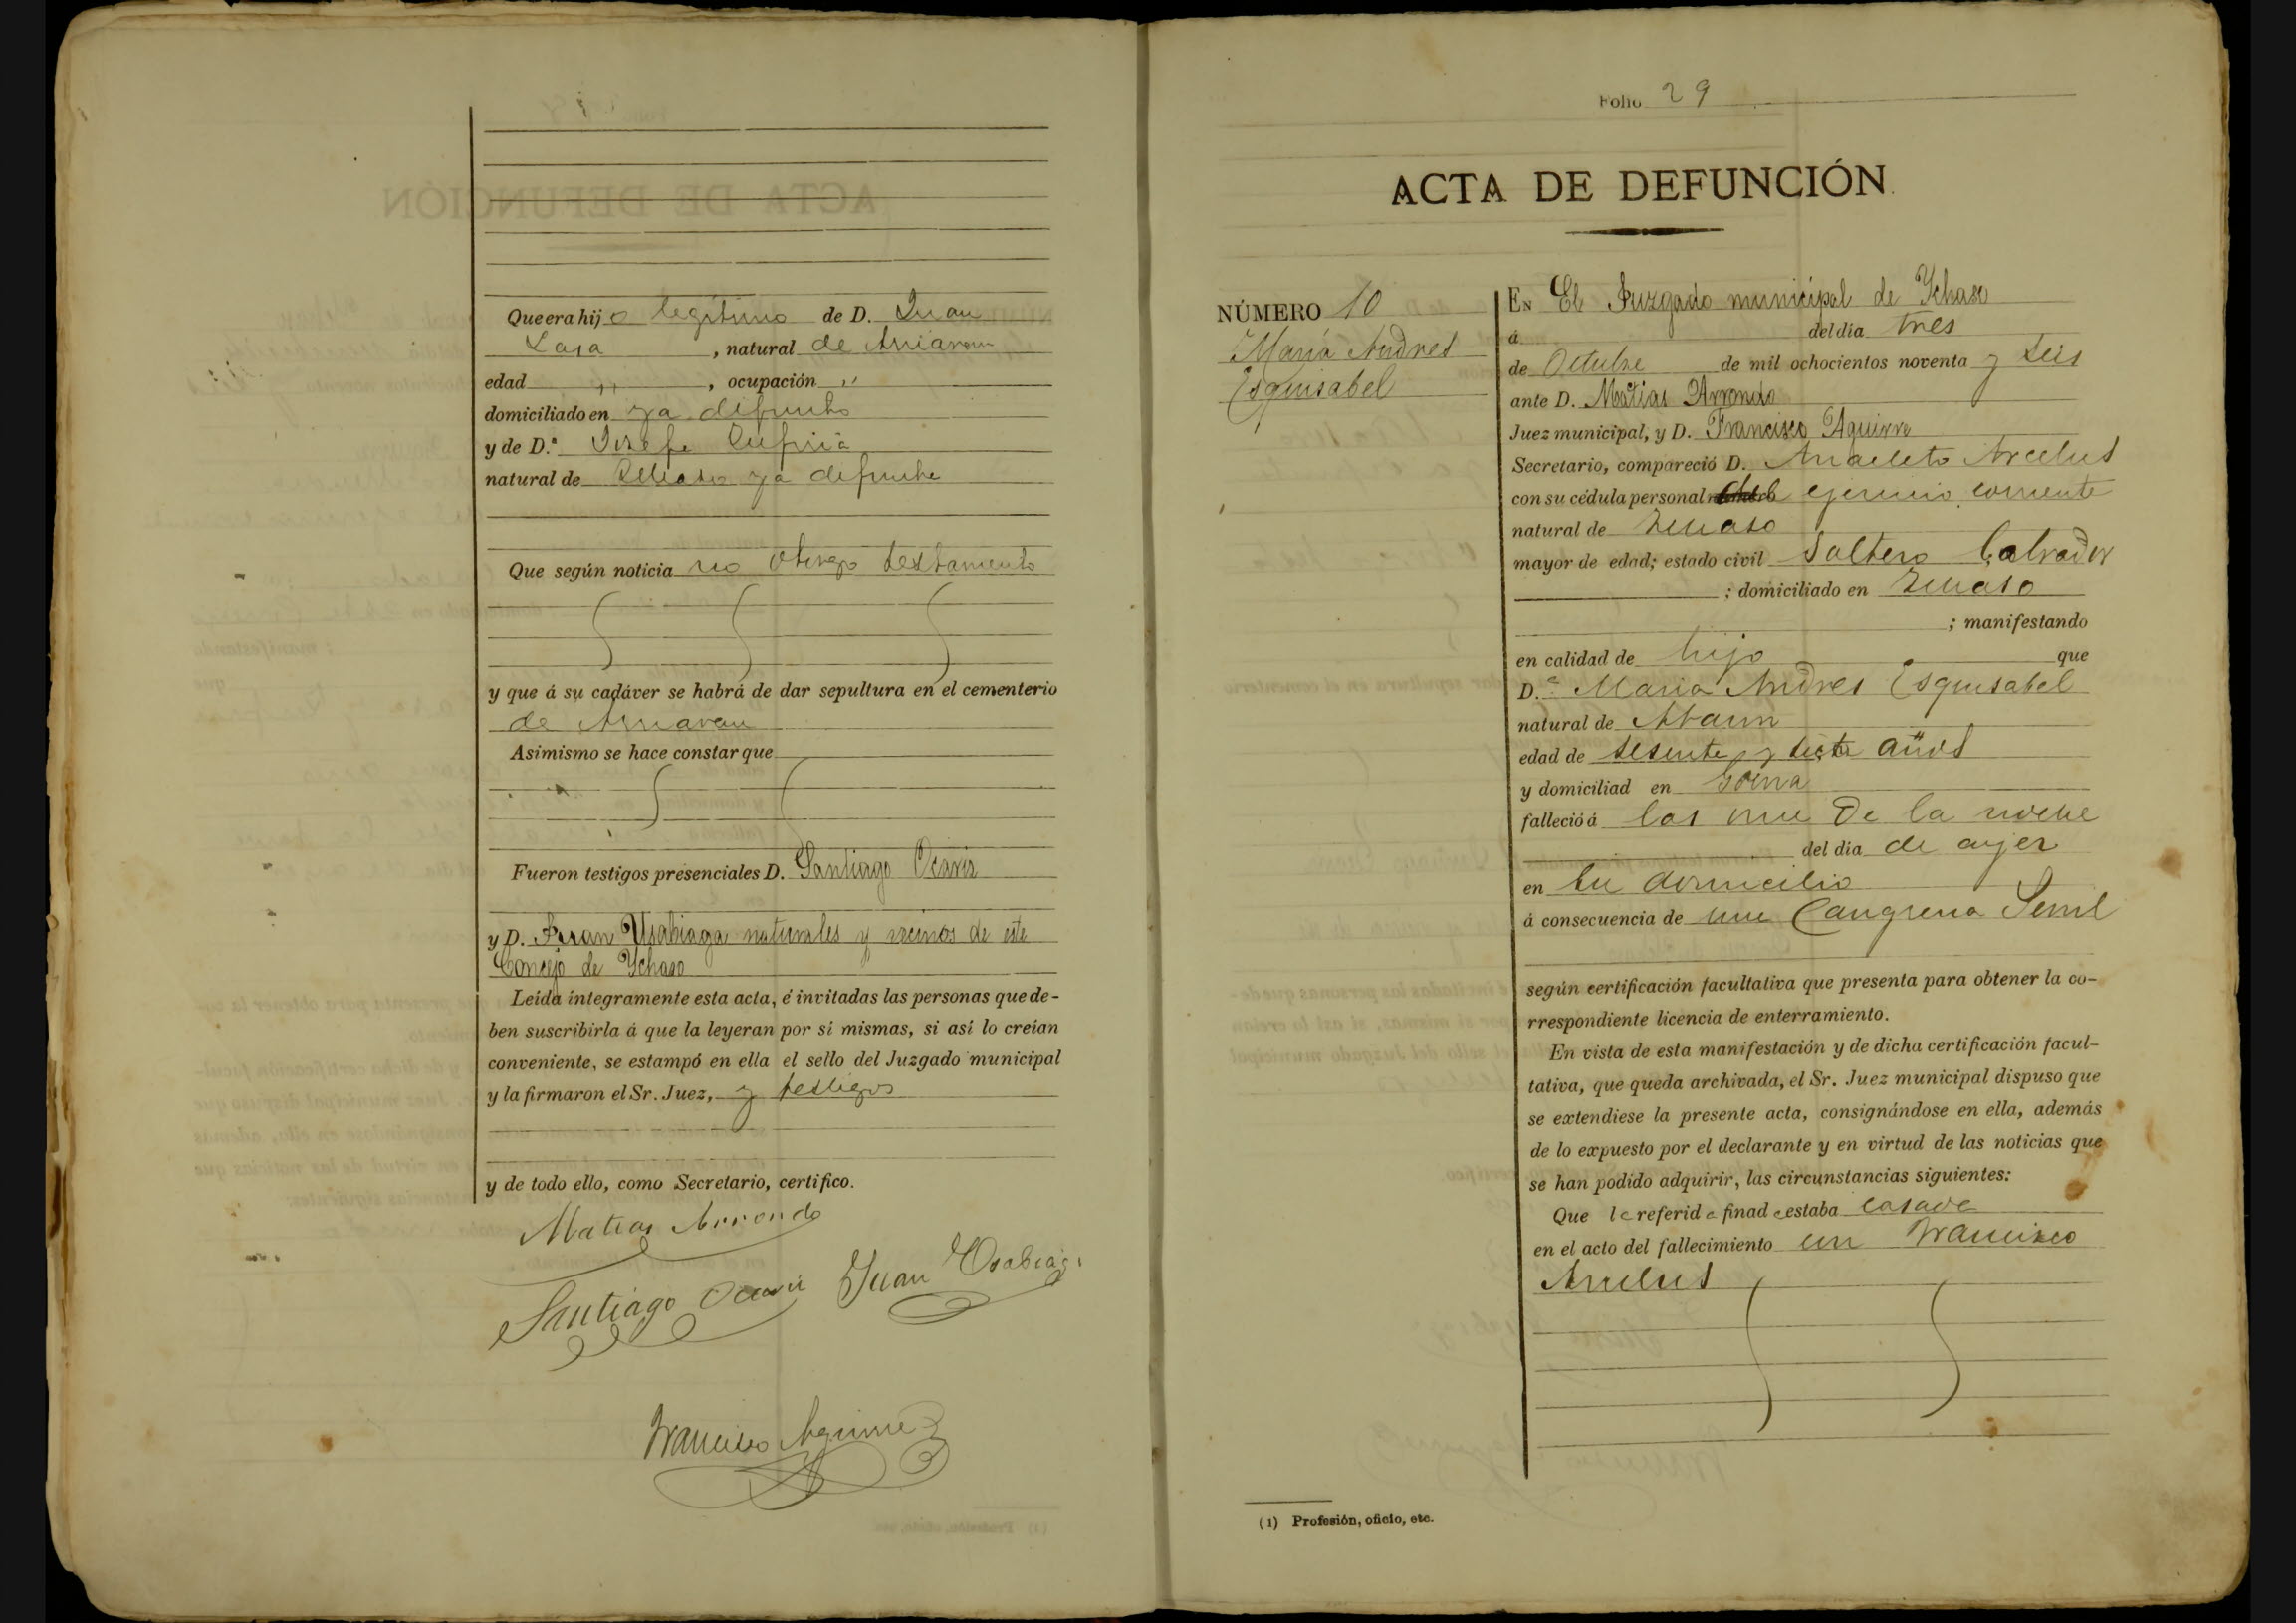 Que era hijo legitimo de D. Juan
Lasa, natural de Arriaran
edad ,, , ocupación ,,
domiciliado en ya difunto
y de D.ª Josefa
natural de ya difunta
Que según noticia no otorgo testamento
y que á su cadáver se habrá de dar sepultura en el cementerio
de Arriaran
Asimismo se hace constar que
Fueron testigos presenciales D. Santiago Ocariz
y D. Juan Usabiaga naturales y vecinos de este
Concejo de Ychaso
Leída íntegramente esta acta, é invitadas las personas que de-
ben suscribirla á que la leyeran por sí mismas, si así lo creían
conveniente, se estampó en ella el sello del Juzgado municipal
y la firmaron el Sr. Juez, y testigos
y de todo ello, como Secretario, certifico.
Matias Arrondo
Santiago Ocariz Juan Usabiaga
Francisco Aguirre
Folio 29
ACTA DE DEFUNCIÓN
NÚMERO 10
María Andres
Esquisabel
EN El Juzgado municipal de Ychaso
á del día tres
de Octubre de mil ochocientos noventa y seis
ante D. Matias Arrondo
Juez municipal, y D. Francisco Aguirre
Secretario, compareció D. Anacleto Arcelus
con su cédula personal del ejercicio corriente
natural de Ychaso
mayor de edad; estado civil Soltero Labrador
; domiciliado en Ychaso
; manifestando
en calidad de hijo que
D.ª Maria Andres Esquisabel
natural de Ataun
edad de sesenta y siete años
y domiciliad en
falleció á las once de la noche
del día de ayer
en su domicilio
á consecuencia de una Cangrena Senil
según certificación facultativa que presenta para obtener la co-
rrespondiente licencia de enterramiento.
En vista de esta manifestación y de dicha certificación facul-
tativa, que queda archivada, el Sr. Juez municipal dispuso que
se extendiese la presente acta, consignándose en ella, además
de lo expuesto por el declarante y en virtud de las noticias que
se han podido adquirir, las circunstancias siguientes:
Que la referida finada estaba casada
en el acto del fallecimiento con Francisco
Arcelus
(1) Profesión, oficio, etc.